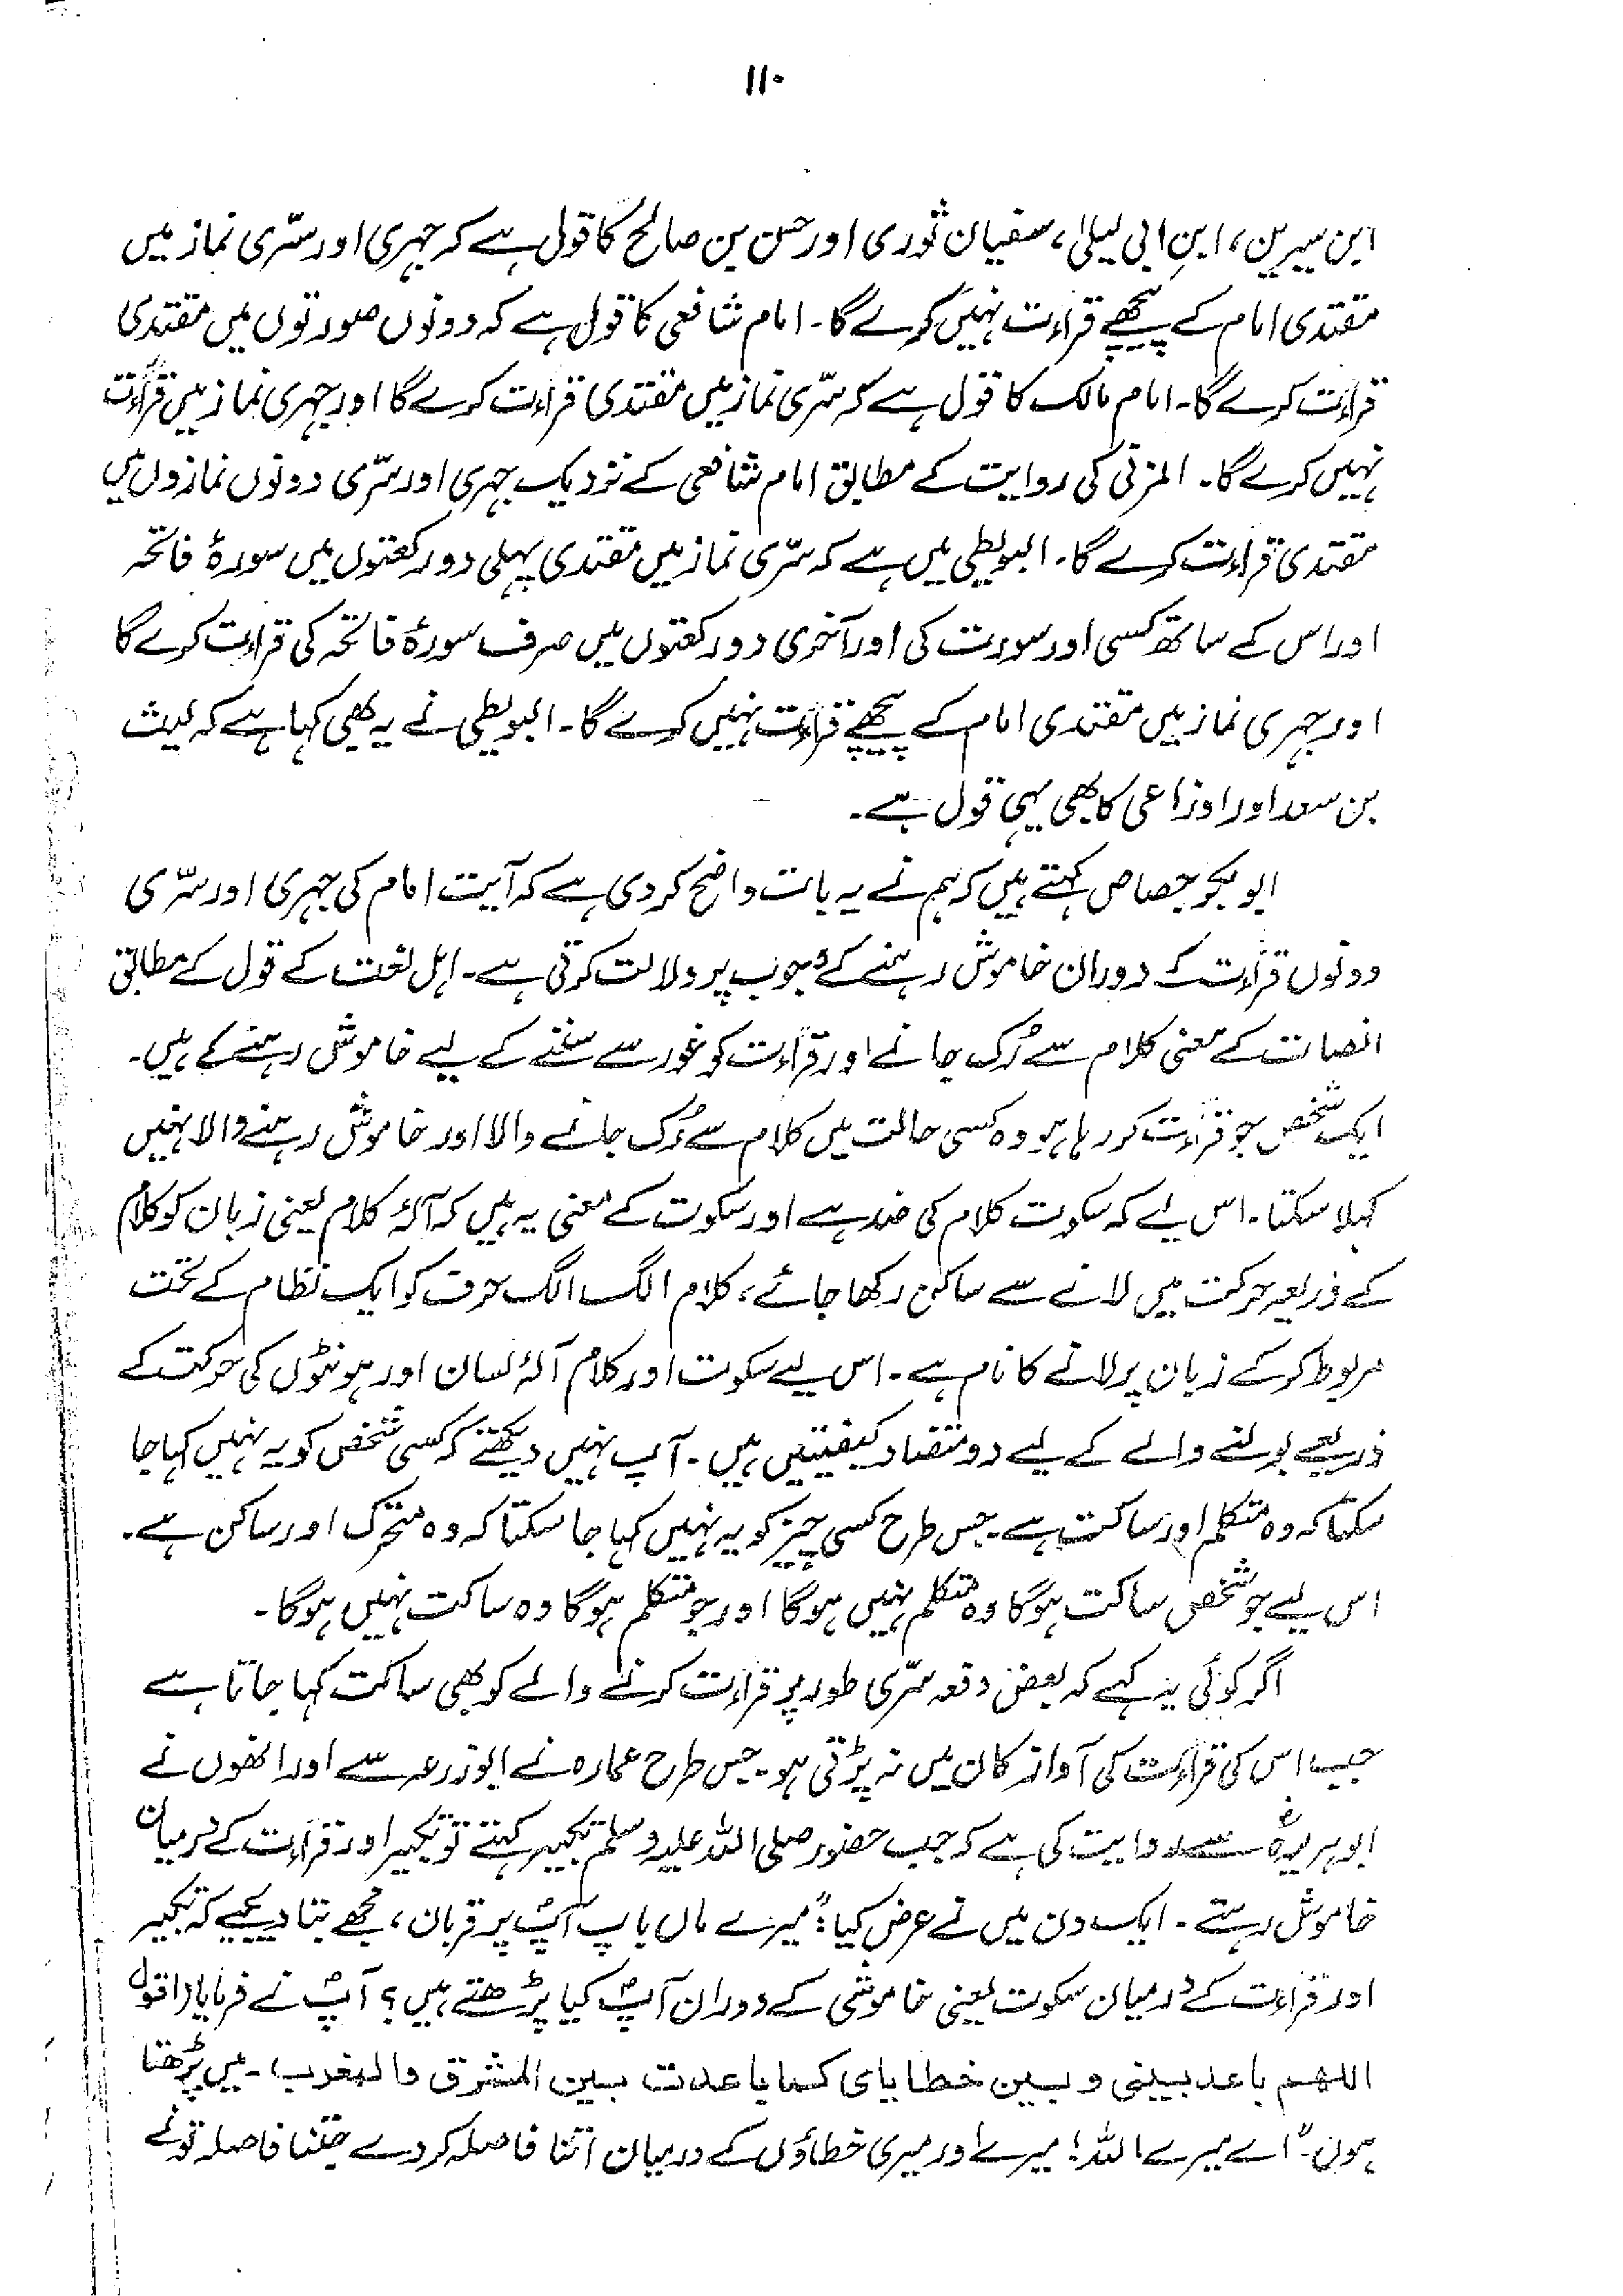 ۱۱۰
ابن سیرین، ابنِ ابی لیلیٰ، سفیان ثوری اور حسن بن صالح کا قول ہے کہ جہری اور سرّی نماز میں
مقتدی امام کے پیچھے قراءت نہیں کرے گا۔ امام شافعی کا قول ہے کہ دونوں صورتوں میں مقتدی
قراءت کرے گا۔ امام مالک کا قول ہے کہ سرّی نماز میں مقتدی قراءت کرے گا اور جہری نماز میں قراءت
نہیں کرے گا۔ المزنی کی روایت کے مطابق امام شافعی کے نزدیک جہری اور سرّی دونوں نمازوں میں
مقتدی قراءت کرے گا۔ البویطی میں ہے کہ سرّی نماز میں مقتدی پہلی دو رکعتوں میں سورۂ فاتحہ
اور اس کے ساتھ کسی اور سورت کی اور آخری دو رکعتوں میں صرف سورۂ فاتحہ کی قراءت کرے گا
اور جہری نماز میں مقتدی امام کے پیچھے قراءت نہیں کرے گا۔ البویطی نے یہ بھی کہا ہے کہ لیث
بن سعد اور اوزاعی کا بھی یہی قول ہے۔
ابوبکر جصاص کہتے ہیں کہ ہم نے یہ بات واضح کر دی ہے کہ آیت امام کی جہری اور سرّی
دونوں قراءت کے دوران خاموش رہنے کے وجوب پر دلالت کرتی ہے۔ اہل لغت کے قول کے مطابق
انصات کے معنی کلام سے رُک جانے اور قراءت کو غور سے سننے کے لیے خاموش رہنے کے ہیں۔
ایک شخص جو قراءت کر رہا ہو وہ کسی حالت میں کلام سے رُک جانے والا اور خاموش رہنے والا نہیں
کہلا سکتا۔ اس لیے کہ سکوت کلام کی ضد ہے اور سکوت کے معنی یہ ہیں کہ آلۂ کلام یعنی زبان کو کلام
کے ذریعہ حرکت میں لانے سے ساکن رکھا جائے، کلام الگ الگ حرف کو ایک نظام کے تحت
مربوط کر کے زبان پر لانے کا نام ہے۔ اس لیے سکوت اور کلام آلۂ لسان اور ہونٹوں کی حرکت کے
ذریعے بولنے والے کے لیے دو متضاد کیفیتیں ہیں۔ آپ نہیں دیکھتے کہ کسی شخص کو یہ نہیں کہا جا
سکتا کہ وہ متکلم اور ساکت ہے۔ جس طرح کسی چیز کو یہ نہیں کہا جا سکتا کہ وہ متحرک اور ساکن ہے۔
اس لیے جو شخص ساکت ہوگا وہ متکلم نہیں ہوگا اور جو متکلم ہوگا وہ ساکت نہیں ہوگا۔
اگر کوئی یہ کہے کہ بعض دفعہ سرّی طور پر قراءت کرنے والے کو بھی ساکت کہا جاتا ہے
جب اس کی قراءت کی آواز کان میں نہ پڑتی ہو۔ جس طرح عمارہ نے ابوزرعہ سے اور انھوں نے
ابوہریرہؓ سے روایت کی ہے کہ جب حضور صلی اللہ علیہ وسلم تکبیر کہتے تو تکبیر اور قراءت کے درمیان
خاموش رہتے۔ ایک دن میں نے عرض کیا: "میرے ماں باپ آپؐ پر قربان، مجھے بتا دیجیے کہ تکبیر
اور قراءت کے درمیان سکوت یعنی خاموشی کے دوران آپؐ کیا پڑھتے ہیں؟ آپؐ نے فرمایا (اقول
اللھم باعد بینی و بین خطایای کما باعدت بین المشرق والمغرب۔ میں پڑھتا
ہوں۔" اے میرے اللہ! میرے اور میری خطاؤں کے درمیان اتنا فاصلہ کر دے جتنا فاصلہ تونے